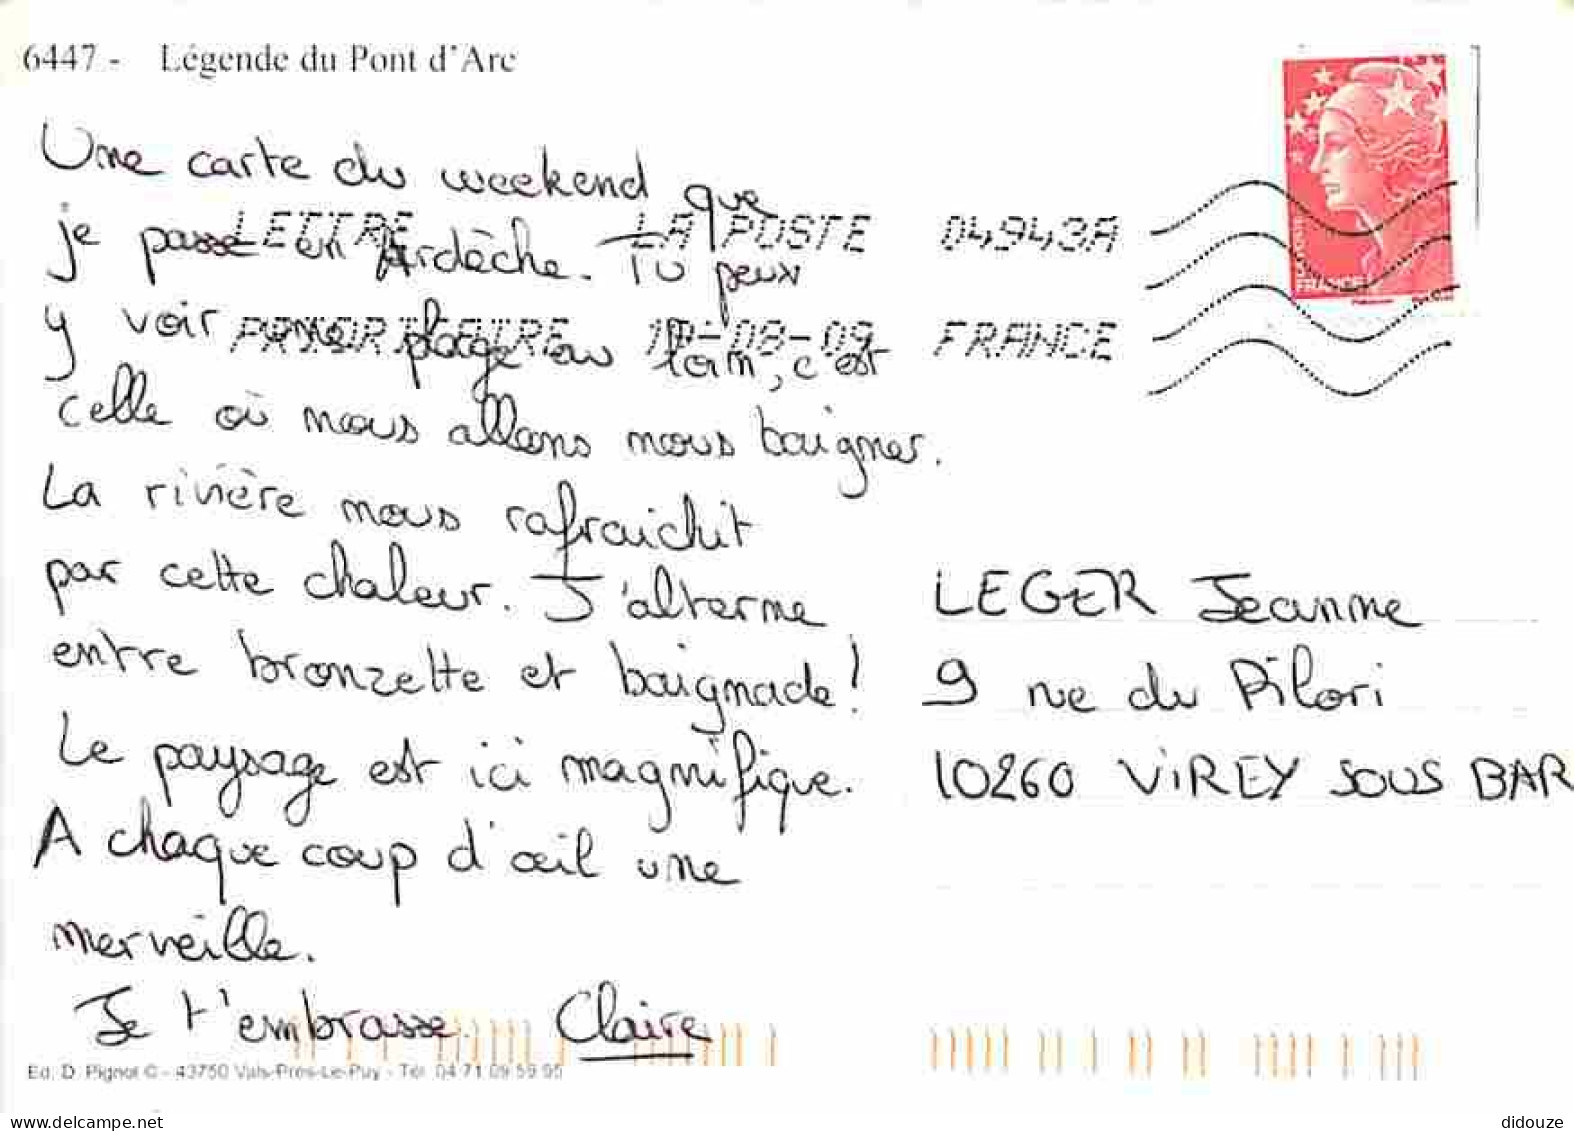 6447 - Légende du Pont d'Arc
Une carte du weekend que
je passe en Ardèche. Tu peux
y voir une plage au loin, c'est
celle où nous allons nous baigner.
La rivière nous rafraichit
par cette chaleur. J'alterne
entre bronzette et baignade!
Le paysage est ici magnifique.
A chaque coup d'œil une
merveille.
Je t'embrasse Claire
LETTRE LA POSTE 04943A
PRIORITAIRE -08-09 FRANCE
FRANCE
LEGER Jeanne
9 rue du Pilori
10260 VIREY SOUS BAR
Ed. D. Pignol © - 43750 Vals-Près-Le-Puy - Tél. 04 71 09 59 95
delcampe.net
didouze